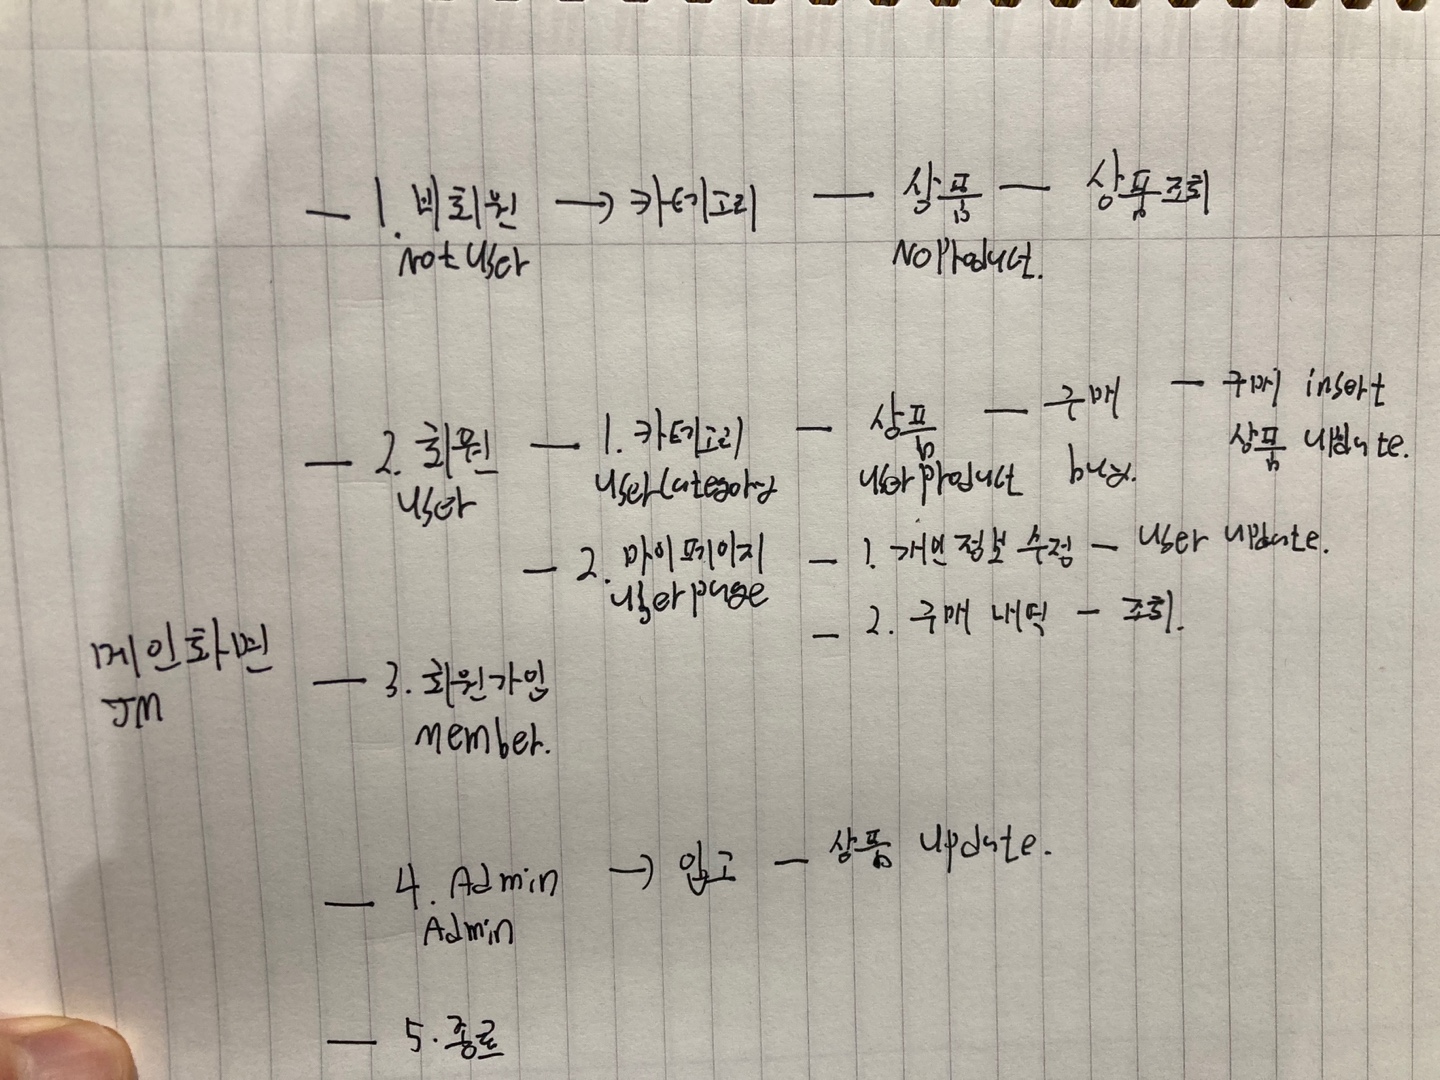 — 1. 비회원 → 카테고리 — 상품 — 상품조회
Not User
NoProduct.
— 2. 회원 — 1. 카테고리 — 상품 — 구매 — 구매 insert
User
UserCategory
UserProduct
buy.
상품 update.
— 2. 마이페이지 — 1. 개인정보 수정 — User update.
Userpage
— 2. 구매 내역 — 조회.
메인화면
JM
— 3. 회원가입
Member.
— 4. Admin → 입고 — 상품 update.
Admin
— 5. 종료